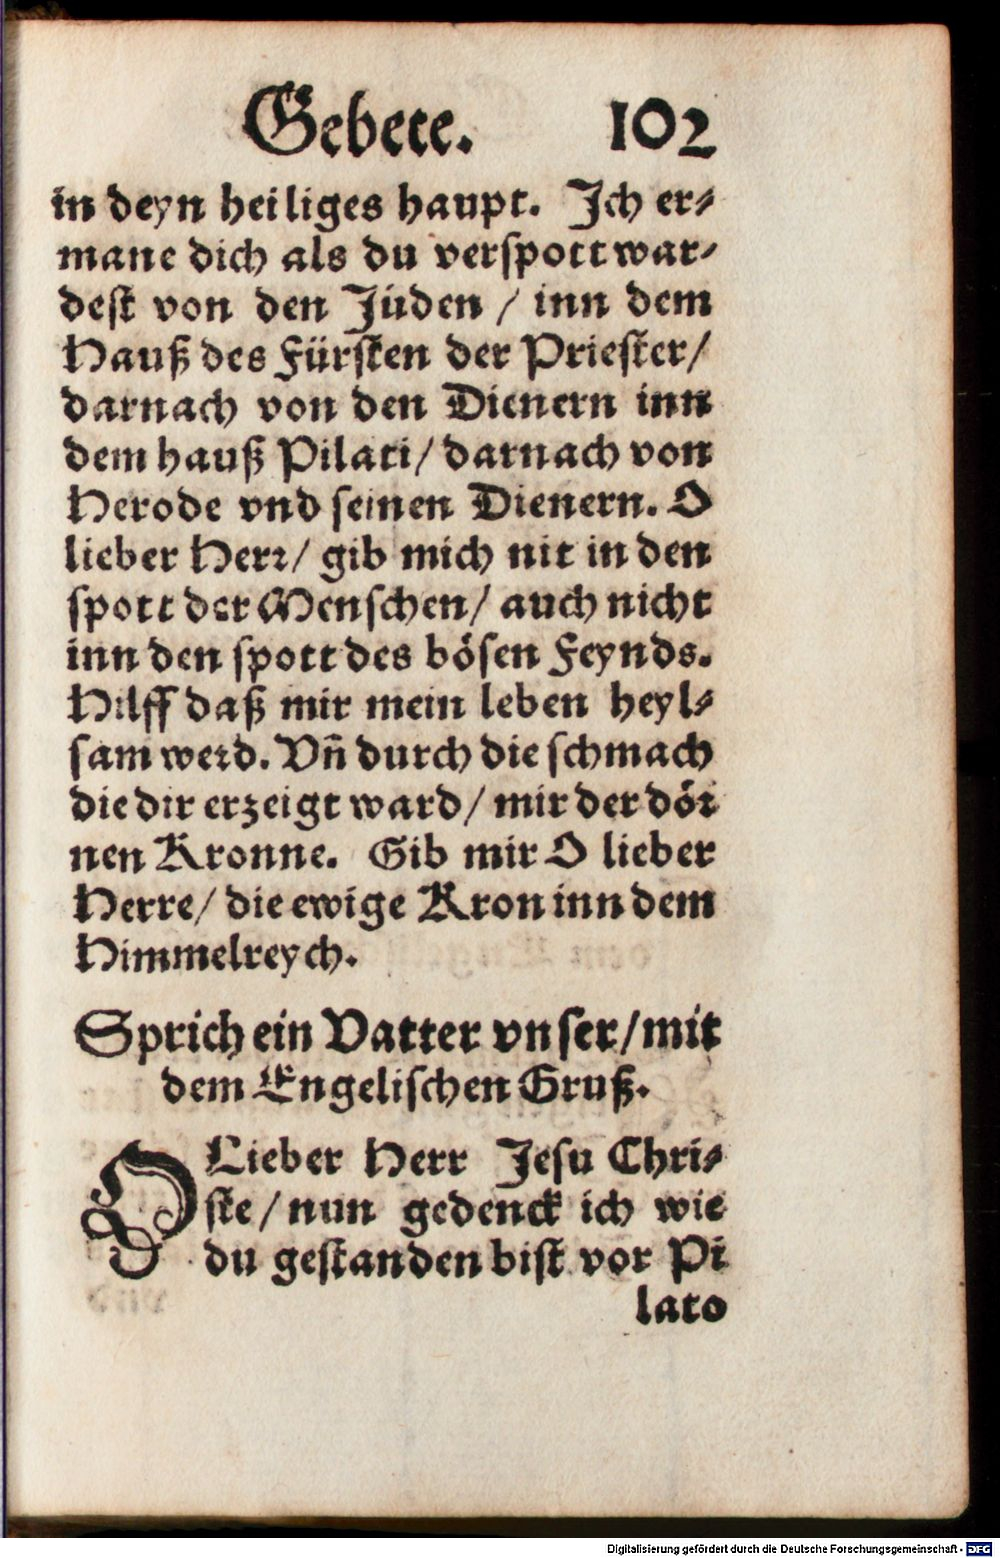 Gebete. 102
in deyn heiliges haupt. Jch er⸗
mane dich als du verſpott war⸗
deſt von den Jüden / inn dem
Hauß des Fürſten der Prieſter/
darnach von den Dienern inn
dem hauß Pilati/ darnach von
Herode vnd ſeinen Dienern. O
lieber Herꝛ/ gib mich nit in den
ſpott der Menſchen/ auch nicht
inn den ſpott des böſen Feynds.
Hilff daß mir mein leben heyl⸗
ſam weꝛd. Vñ durch die ſchmach
die dir erzeigt ward/ mir der döꝛ
nen Kronne. Gib mir O lieber
Herre/ die ewige Kron inn dem
Himmelreych.
Sprich ein Vatter vnſer/mit
dem Engeliſchen Gruß.
O Lieber Herr Jeſu Chri⸗
ſte/ nun gedenck ich wie
du geſtanden biſt vor Pi
lato
Digitalisierung gefördert durch die Deutsche Forschungsgemeinschaft - DFG